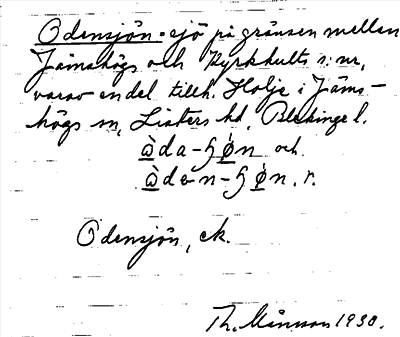 Odensjön - sjö på gränsen mellan
Jämshögs och Kyrkhults s:nr,
varav en del tillh. Holje i Jäms-
högs sn, Listers hd, Blekinge l.
ὼda-ɧǿn och
ὼden-ɧǿn. r.
Odensjön, ek.
Th. Månsson 1930.